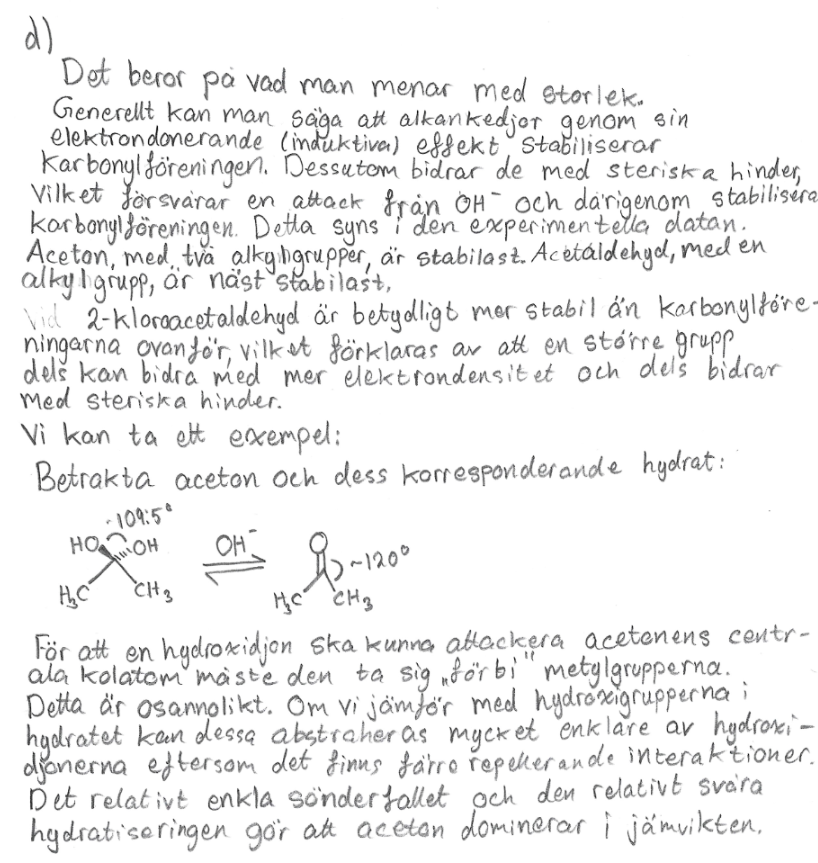 d)
Det beror på vad man menar med storlek.
Generellt kan man säga att alkankedjor genom sin
elektrondonerande (induktiva) effekt stabiliserar
karbonylföreningen. Dessutom bidrar de med steriska hinder,
vilket försvårar en attack från OH⁻ och därigenom stabilisera
karbonylföreningen. Detta syns i den experimentella datan.
Aceton, med två alkylgrupper, är stabilast. Acetaldehyd, med en
alkylgrupp, är näst stabilast,
Vid 2-kloroacetaldehyd är betydligt mer stabil än karbonylföre-
ningarna ovanför, vilket förklaras av att en större grupp
dels kan bidra med mer elektrondensitet och dels bidrar
med steriska hinder.
Vi kan ta ett exempel:
Betrakta aceton och dess korresponderande hydrat:
~109.5°
HO OH OH⁻ O ~120°
H₃C CH₃ H₃C CH₃
För att en hydroxidjon ska kunna attackera acetonens centr-
ala kolatom måste den ta sig "förbi" metylgrupperna.
Detta är osannolikt. Om vi jämför med hydroxigrupperna i
hydratet kan dessa abstraheras mycket enklare av hydroxi-
djonerna eftersom det finns färre repellerande interaktioner.
Det relativt enkla sönderfallet och den relativt svåra
hydratiseringen gör att aceton dominerar i jämvikten.